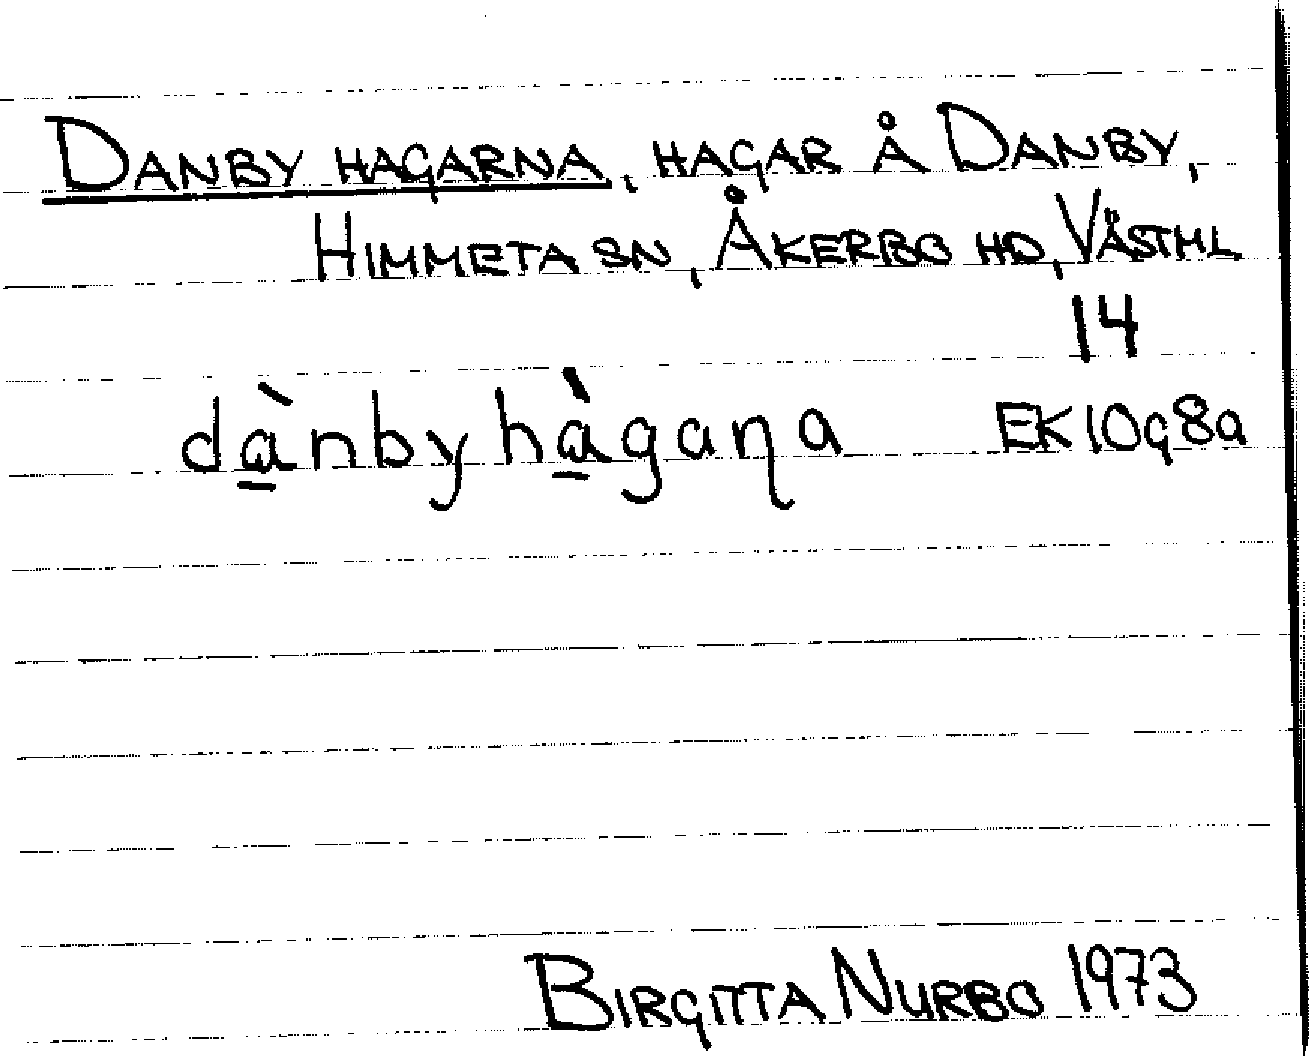 DANBY HAGARNA, HAGAR Å DANBY,
HIMMETA SN, ÅKERBO HD, VÄSTML
14
dà̱nbyhà̱gaṇa EK10g8a
BIRGITTA NURBO 1973